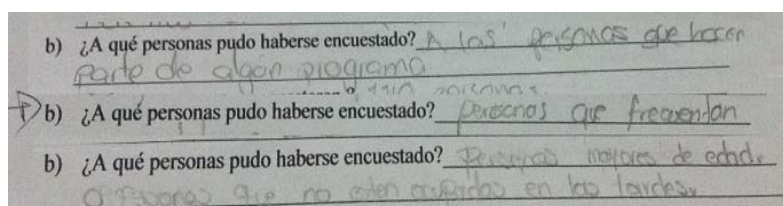 b) ¿A qué personas pudo haberse encuestado? A las personas que hacen
parte de algún programa
b) ¿A qué personas pudo haberse encuestado? personas que frecuentan
b) ¿A qué personas pudo haberse encuestado? Personas mayores de edad.
O personas que no esten ocupadas en las tardes.